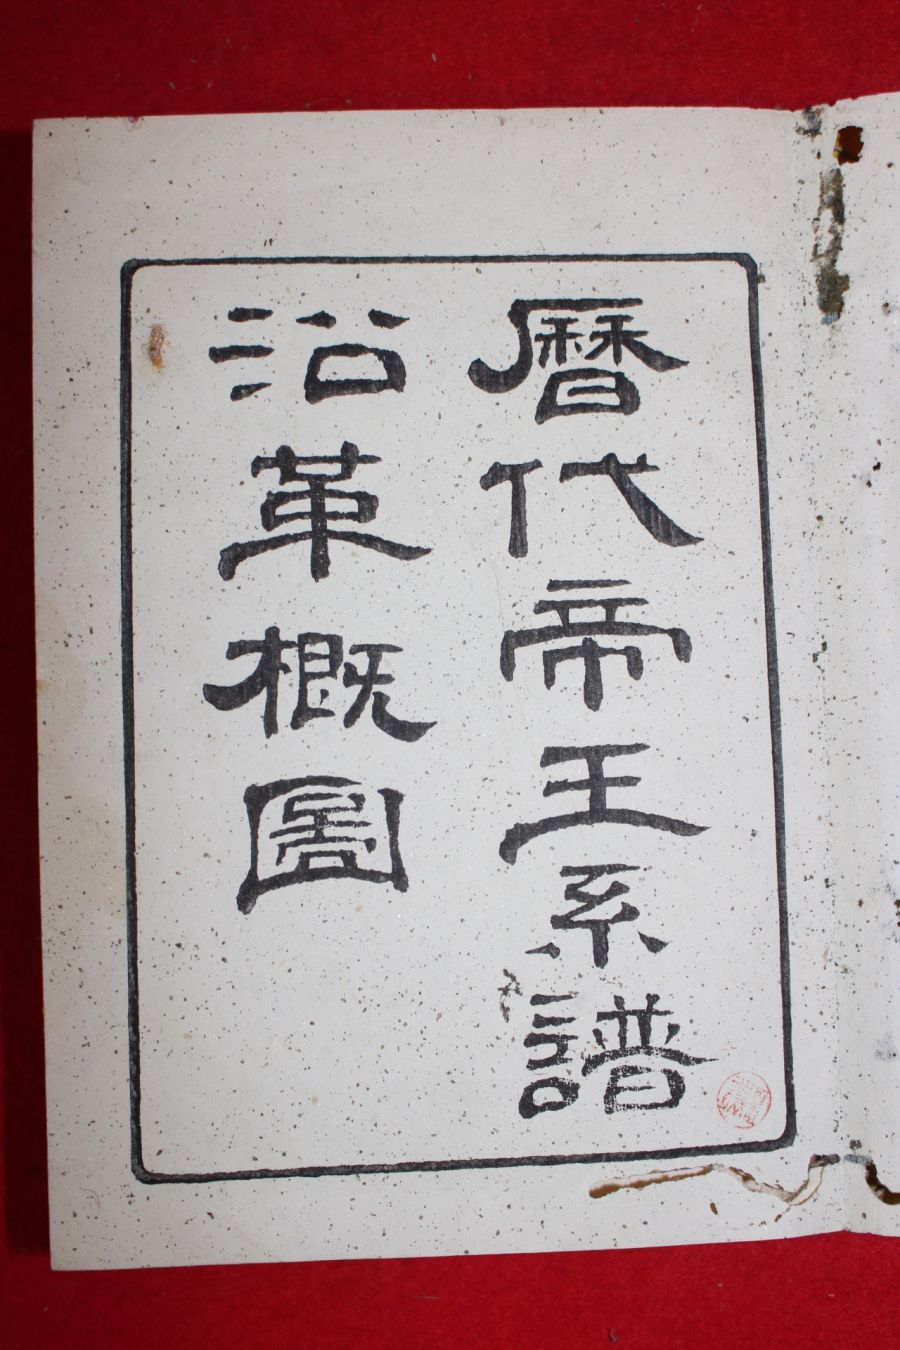 曆代帝王系譜
沿革概圖